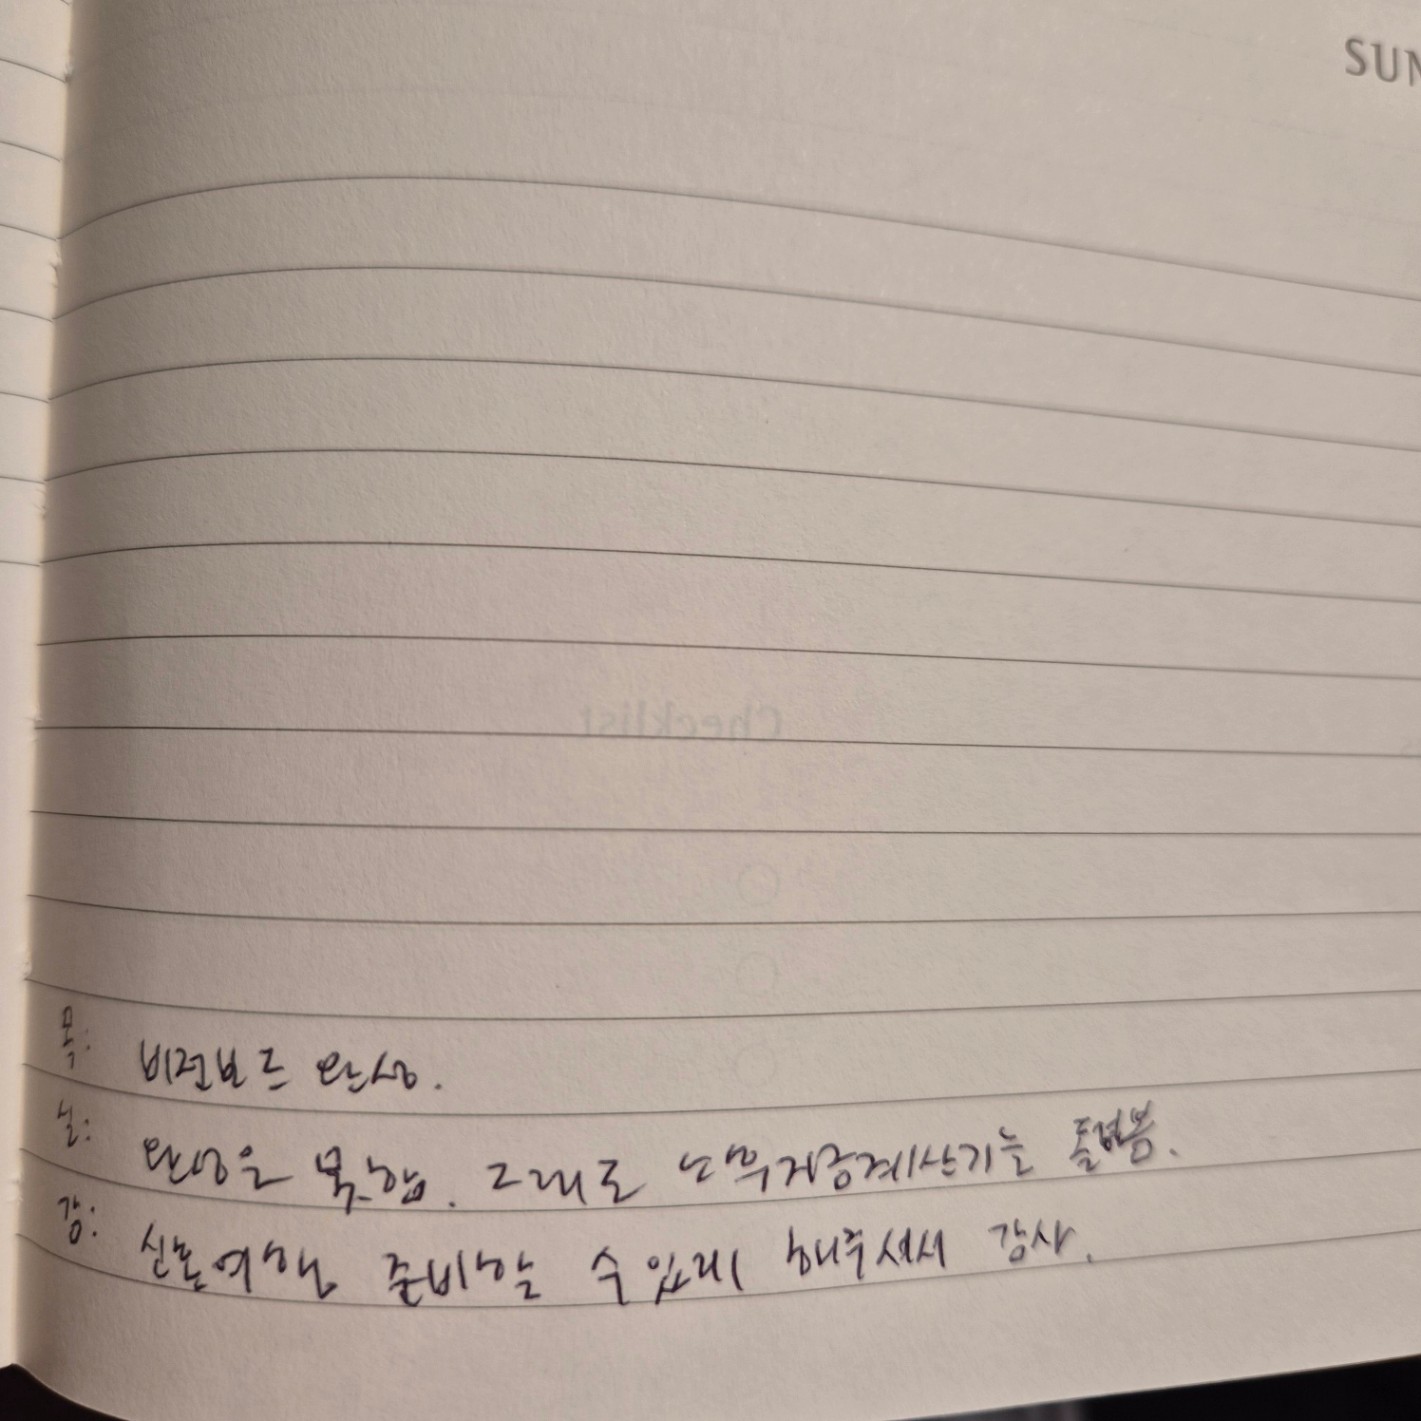 SUN
Checklist
목: 비전보드 완성.
실: 완성은 못함. 그래도 노무자금계산기는 돌려봄.
감: 신혼여행 준비할 수 있게 해주셔서 감사.